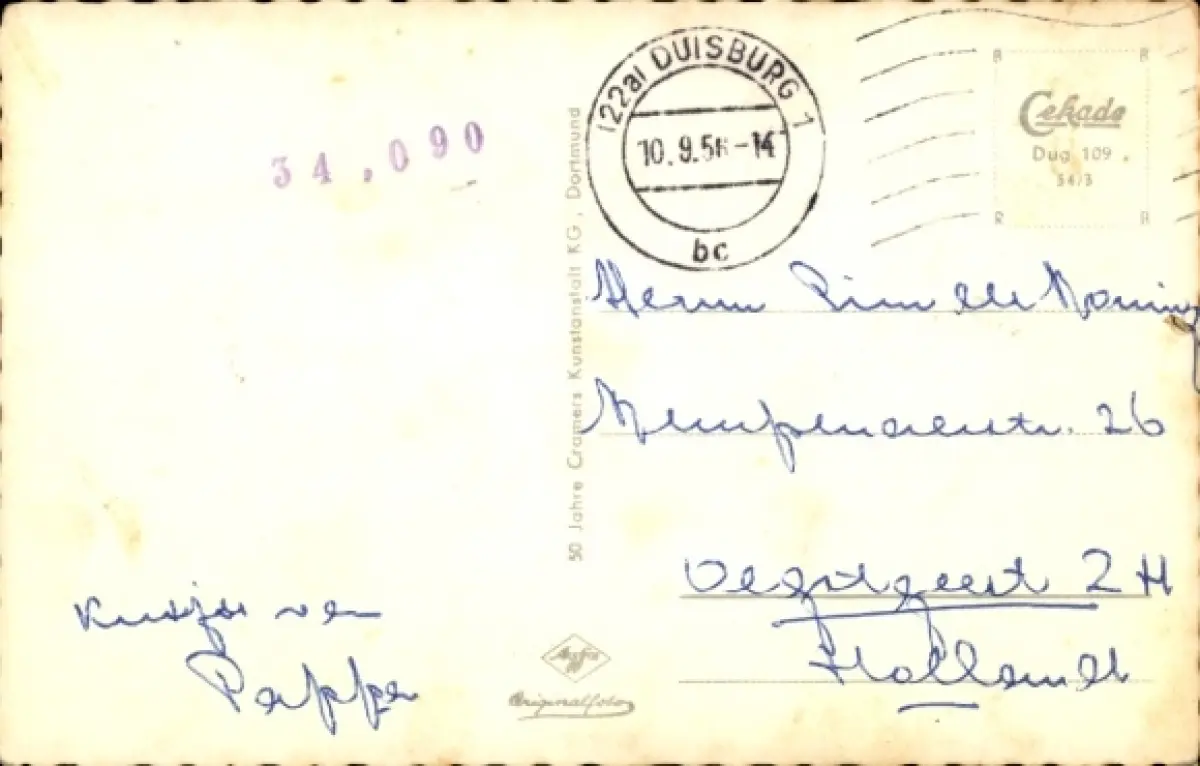 34.090
(22a) DUISBURG 1
10.9.56-14
bc
Cekade
Dug 109.
54/3
50 Jahre Cramers Kunstanstalt KG, Dortmund
Herrn Pim de Koning
26
Oegstgeest ZH
Holland
Kusjes van
Pappa
Agfa
Originalfoto